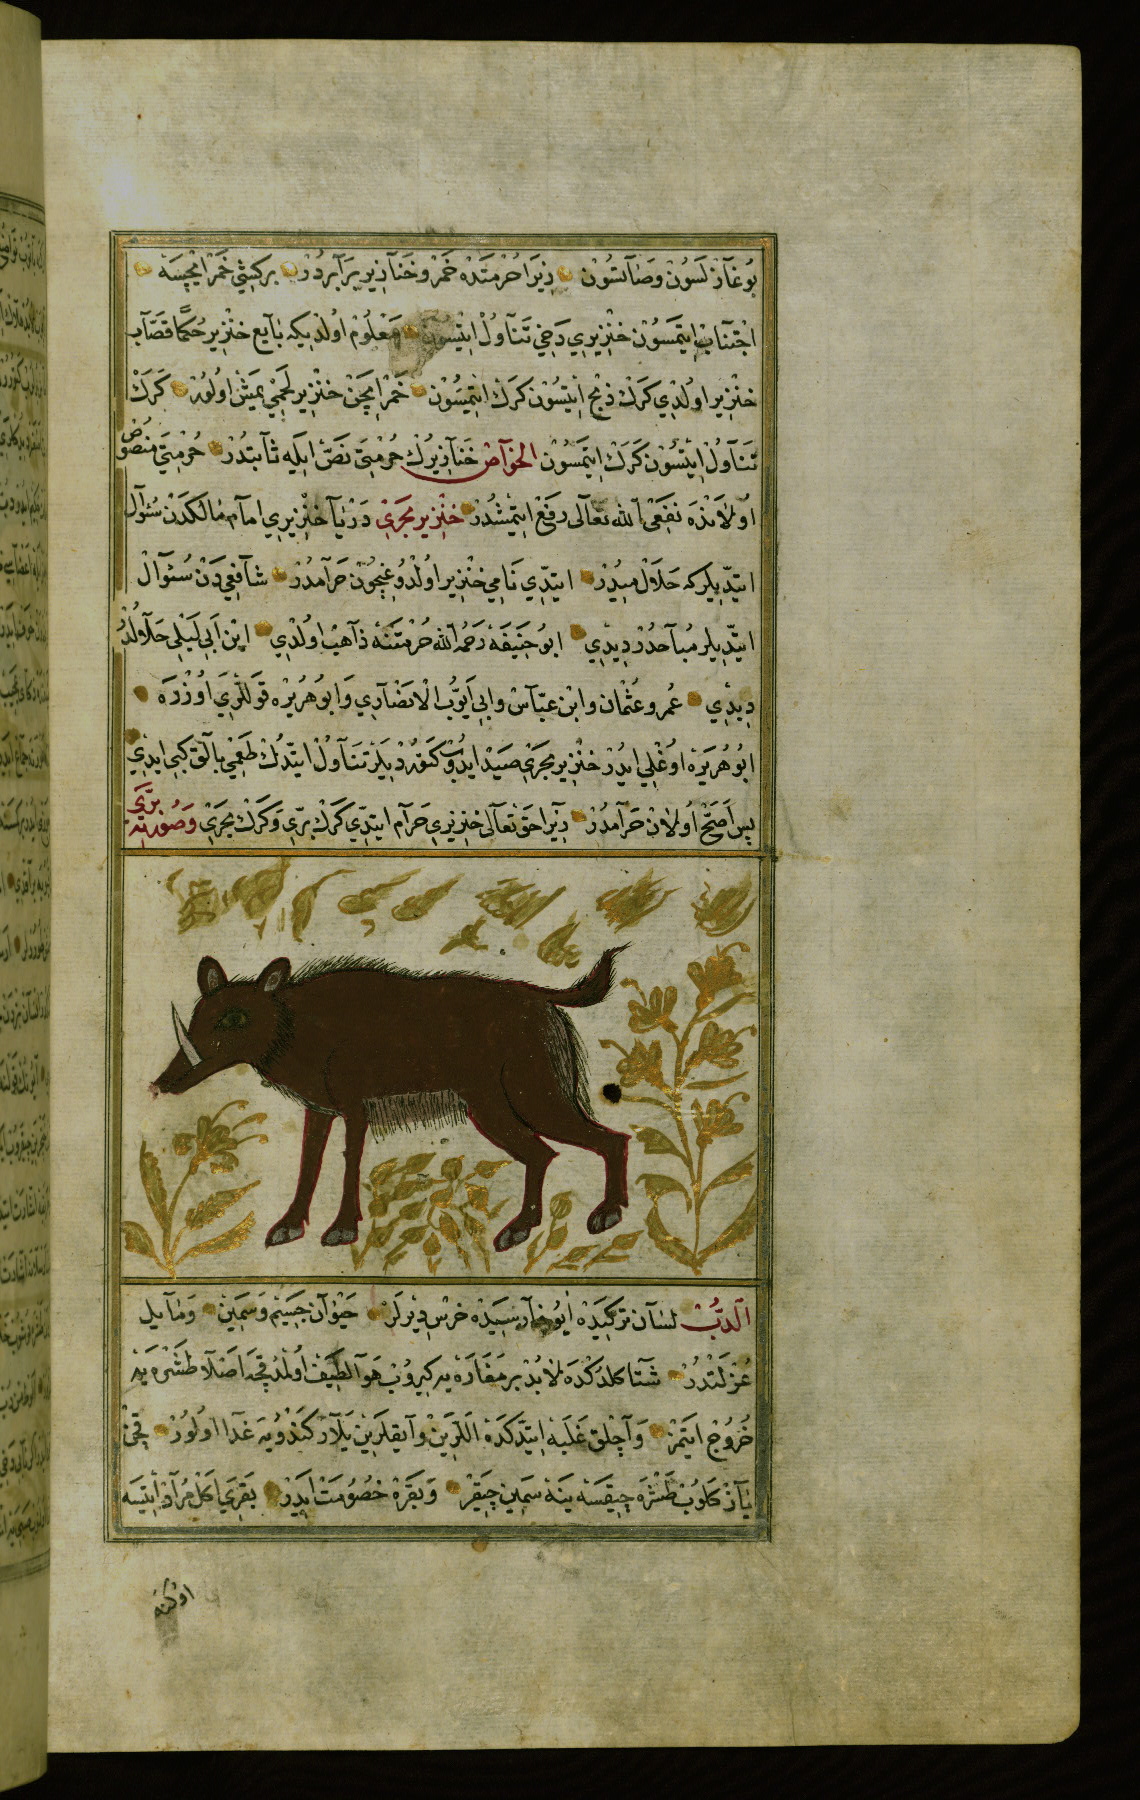 بوغازلسون وصاتسون زیرا حرمتده خمر و خنازیر برابردر بر کشی خمر ایچسه
اجتناب ایتمسون خنزیری دخی تناول ایتسون معلوم اولدیکه بایع خنزیر حکما قصاب
خنزیر اولدی کرك ذبح ایتسون کرك ایتمسون خمر ایچن خنزیر لحمی یمش اولور کرك
تناول ایتسون کرك ایتمسون الخواص خنازیرك حرمتی نص ایله ثابتدر حرمتی منصوص
اولانده نفعی الله تعالی رفع ایتمشدر خنزیر بحری دریا خنزیری امام مالکدن سؤال
ایتدیلر که حلال میدر ایتدی نامی خنزیر اولدوغیچون حرامدر شافعی دن سؤال
ایتدیلر مباحدر دیدی ابو حنیفه رحمه الله حرمتنه ذاهب اولدی ابن ابی لیلی حلالدر
دیدی عمر و عثمان و ابن عباس و ابی ایوب الانصاری و ابو هریره قوللری اوزره
ابو هریره اوغلی ایدر خنزیر بحری صید ایدوب کتوردیلر تناول ایتدك طعمی بالق کبی ایدی
پس اصح اولان حرامدر زیرا حق تعالی خنزیری حرام ایتدی کرك بری و کرك بحری و صورت بری
الدب لسان ترکیده ایو فارسیده خرس دیرلر حیوان جسیم و سمین و مایل
عزلتدر شتا کلدکده لابد بر مغاره یه کیروب هوا لطیف اولمدقجه اصلا طشره یه
خروج ایتمز و آچلق غلبه ایتدکده اللرین و ایقلرین یلار کندویه غدا اولور قچن
یاز کلوب طشره چیقسه ینه سمین چیقر و بقره خصومت ایدر بقری اکل مراد ایتسه
اوکنه